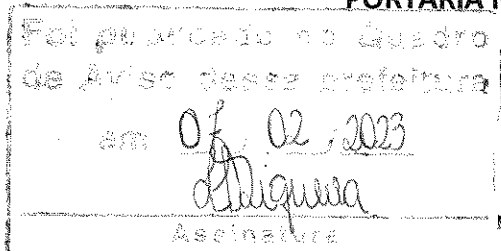 PORTARIA
Foi publicado no Quadro
de Aviso dessa prefeitura
em 07 02 2023
Assinatura